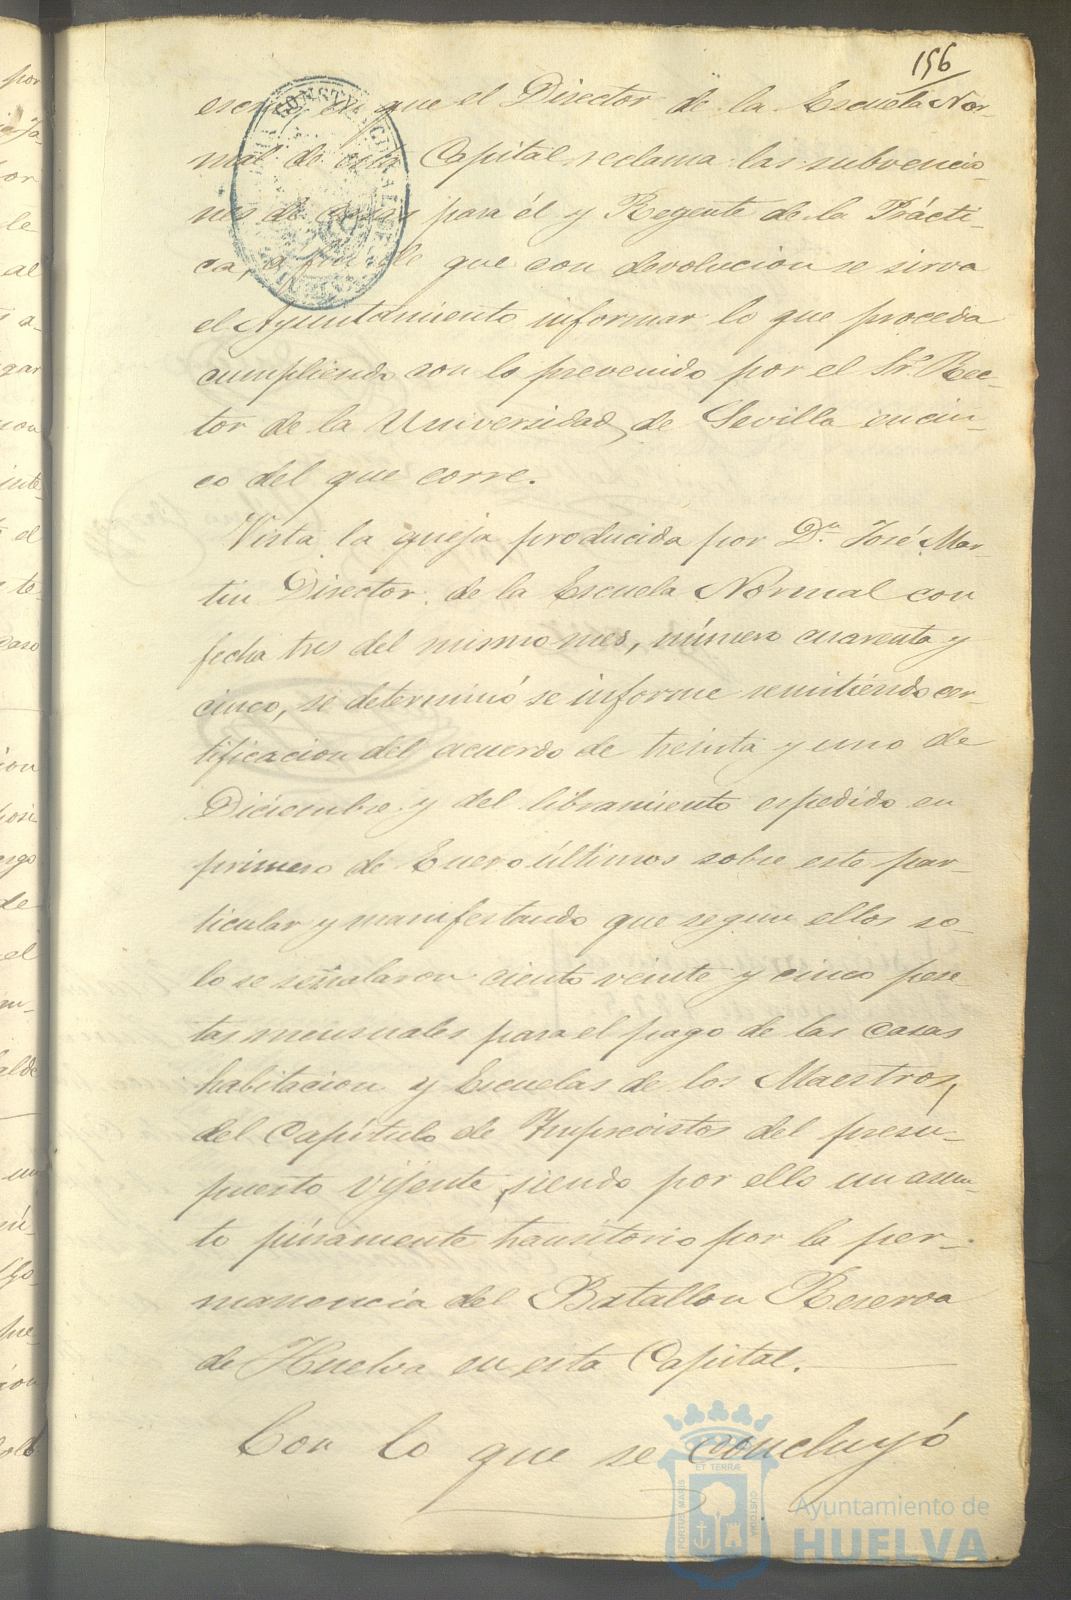 156
en que el Director de la Escuela Nor-
mal de esta Capital reclama las subvencio-
nes de casas para él y Regente de la Prácti-
ca, a fin de que con devolucion se sirva
el Ayuntamiento informar lo que proceda
cumpliendo con lo prevenido por el Sr. Rec-
tor de la Universidad de Sevilla en cin-
co del que corre.
Vista la queja producida por Dn. José Mar-
tin Director de la Escuela Normal con
fecha tres del mismo mes, número cuarenta y
cinco, se determinó se informe remitiendo cer-
tificacion del acuerdo de treinta y uno de
Diciembre y del libramiento espedido en
primero de Enero últimos sobre este par-
ticular y manifestando que segun ellos so-
lo se señalaron ciento veinte y cinco pese
tas mensuales para el pago de las casas
habitacion y Escuelas de los Maestros,
del Capítulo de Imprevistos del presu-
puesto vijente, siendo por ello un asun-
to púramente transitorio por la per-
manencia del Batallon Reserva
de Huelva en esta Capital.
Con lo que se concluyó
Ayuntamiento de
HUELVA
PORTUS MARIS
ET TERRÆ
CUSTODIA